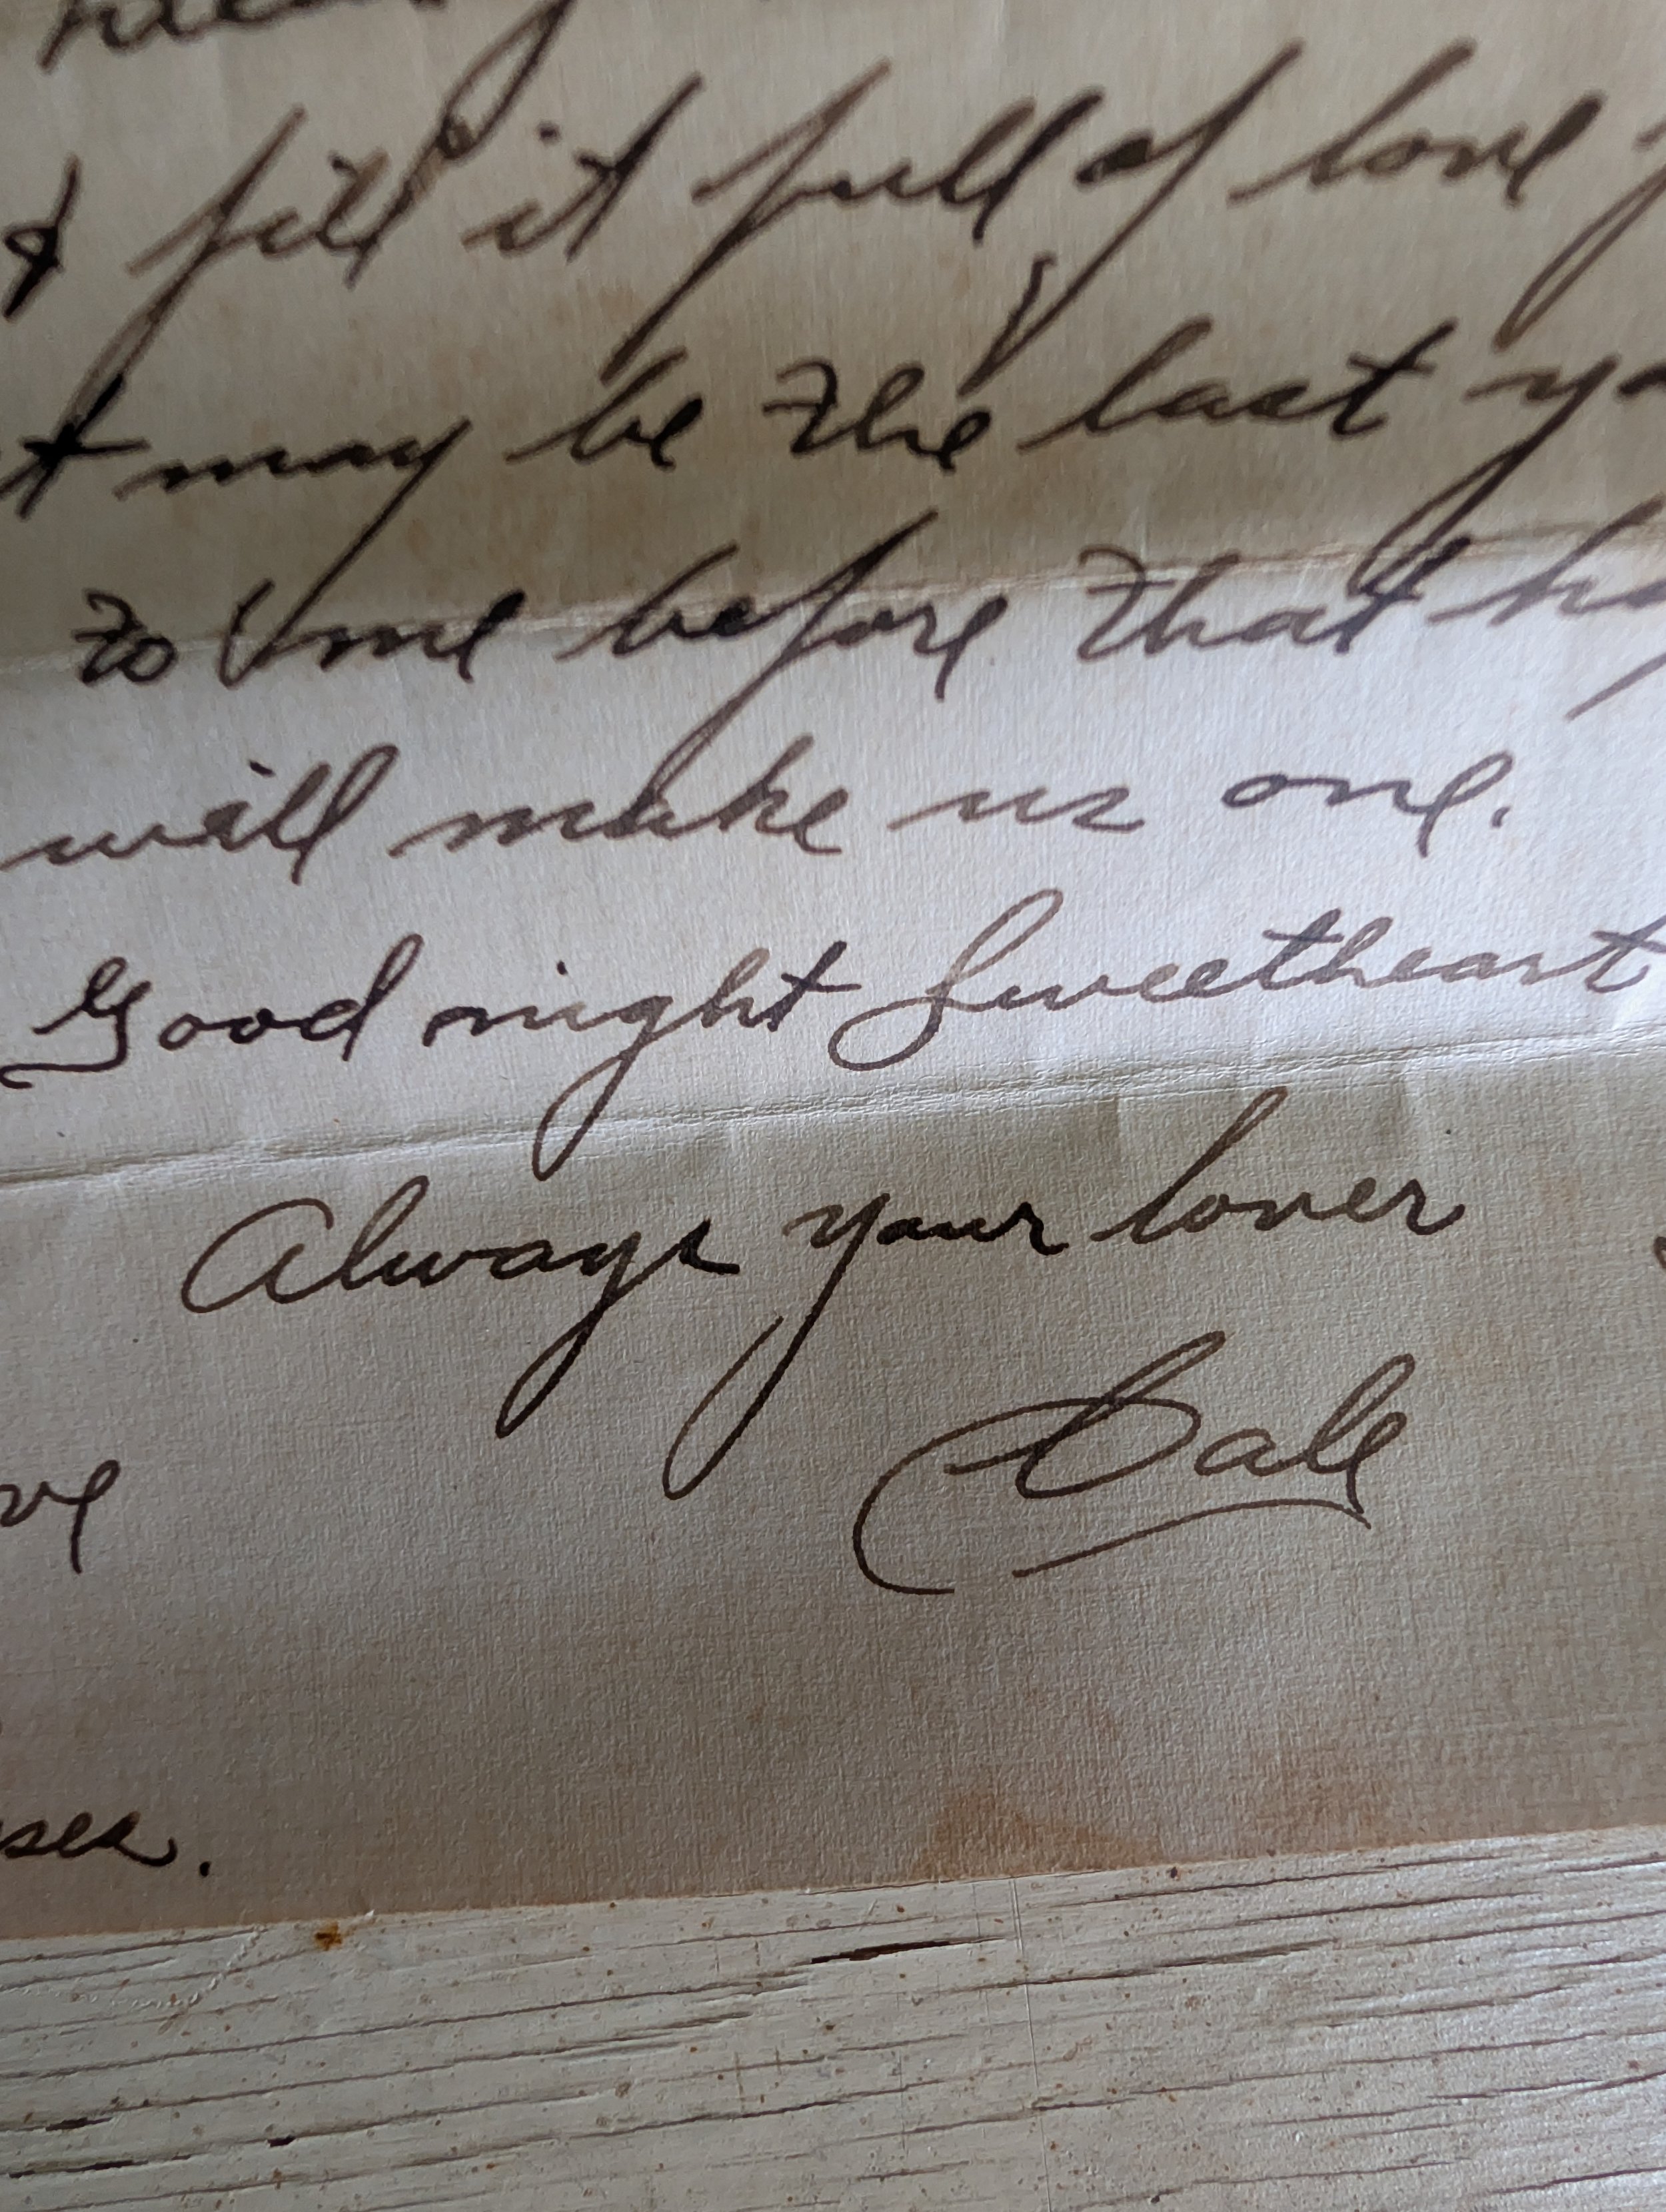 fill it full of love
may be the last
to me before that
will make us one.
Good night Sweetheart
Always your lover
Dale